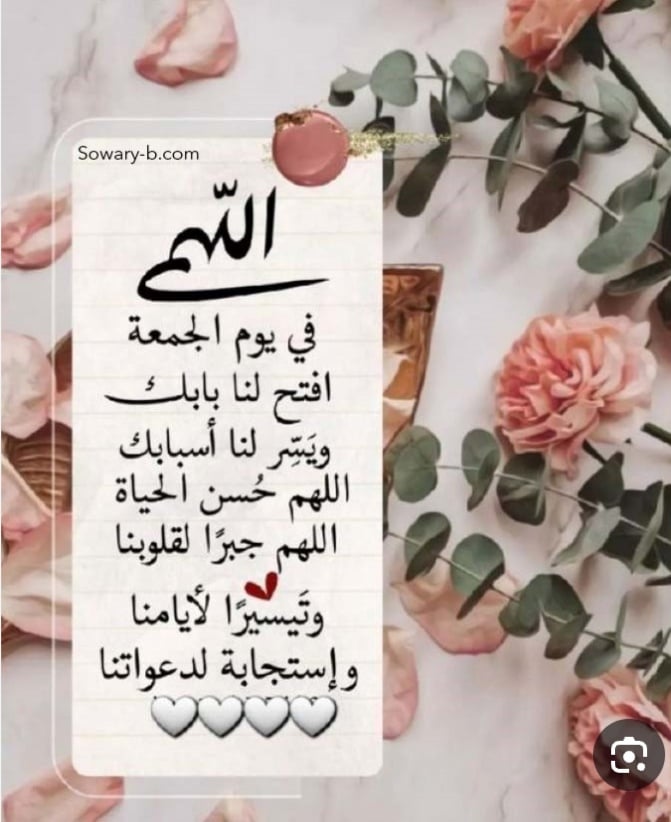 Sowary-b.com
اللهم
في يوم الجمعة
افتح لنا بابك
ويَسِّر لنا أسبابك
اللهم حُسن الحياة
اللهم جبرًا لقلوبنا
وتَيسيرًا لأيامنا
وإستجابة لدعواتنا